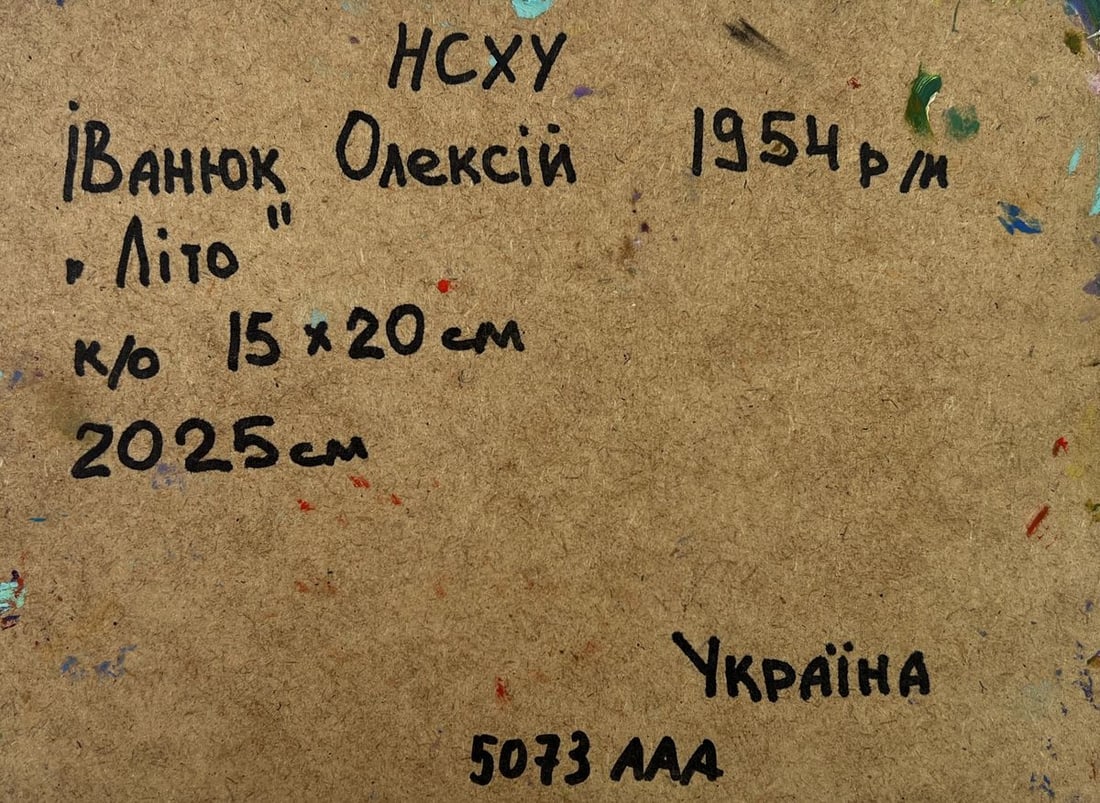 НСХУ
Іванюк Олексій 1954 р/н
„Літо"
к/о 15 x 20 см
2025см
Україна
5073 ААА